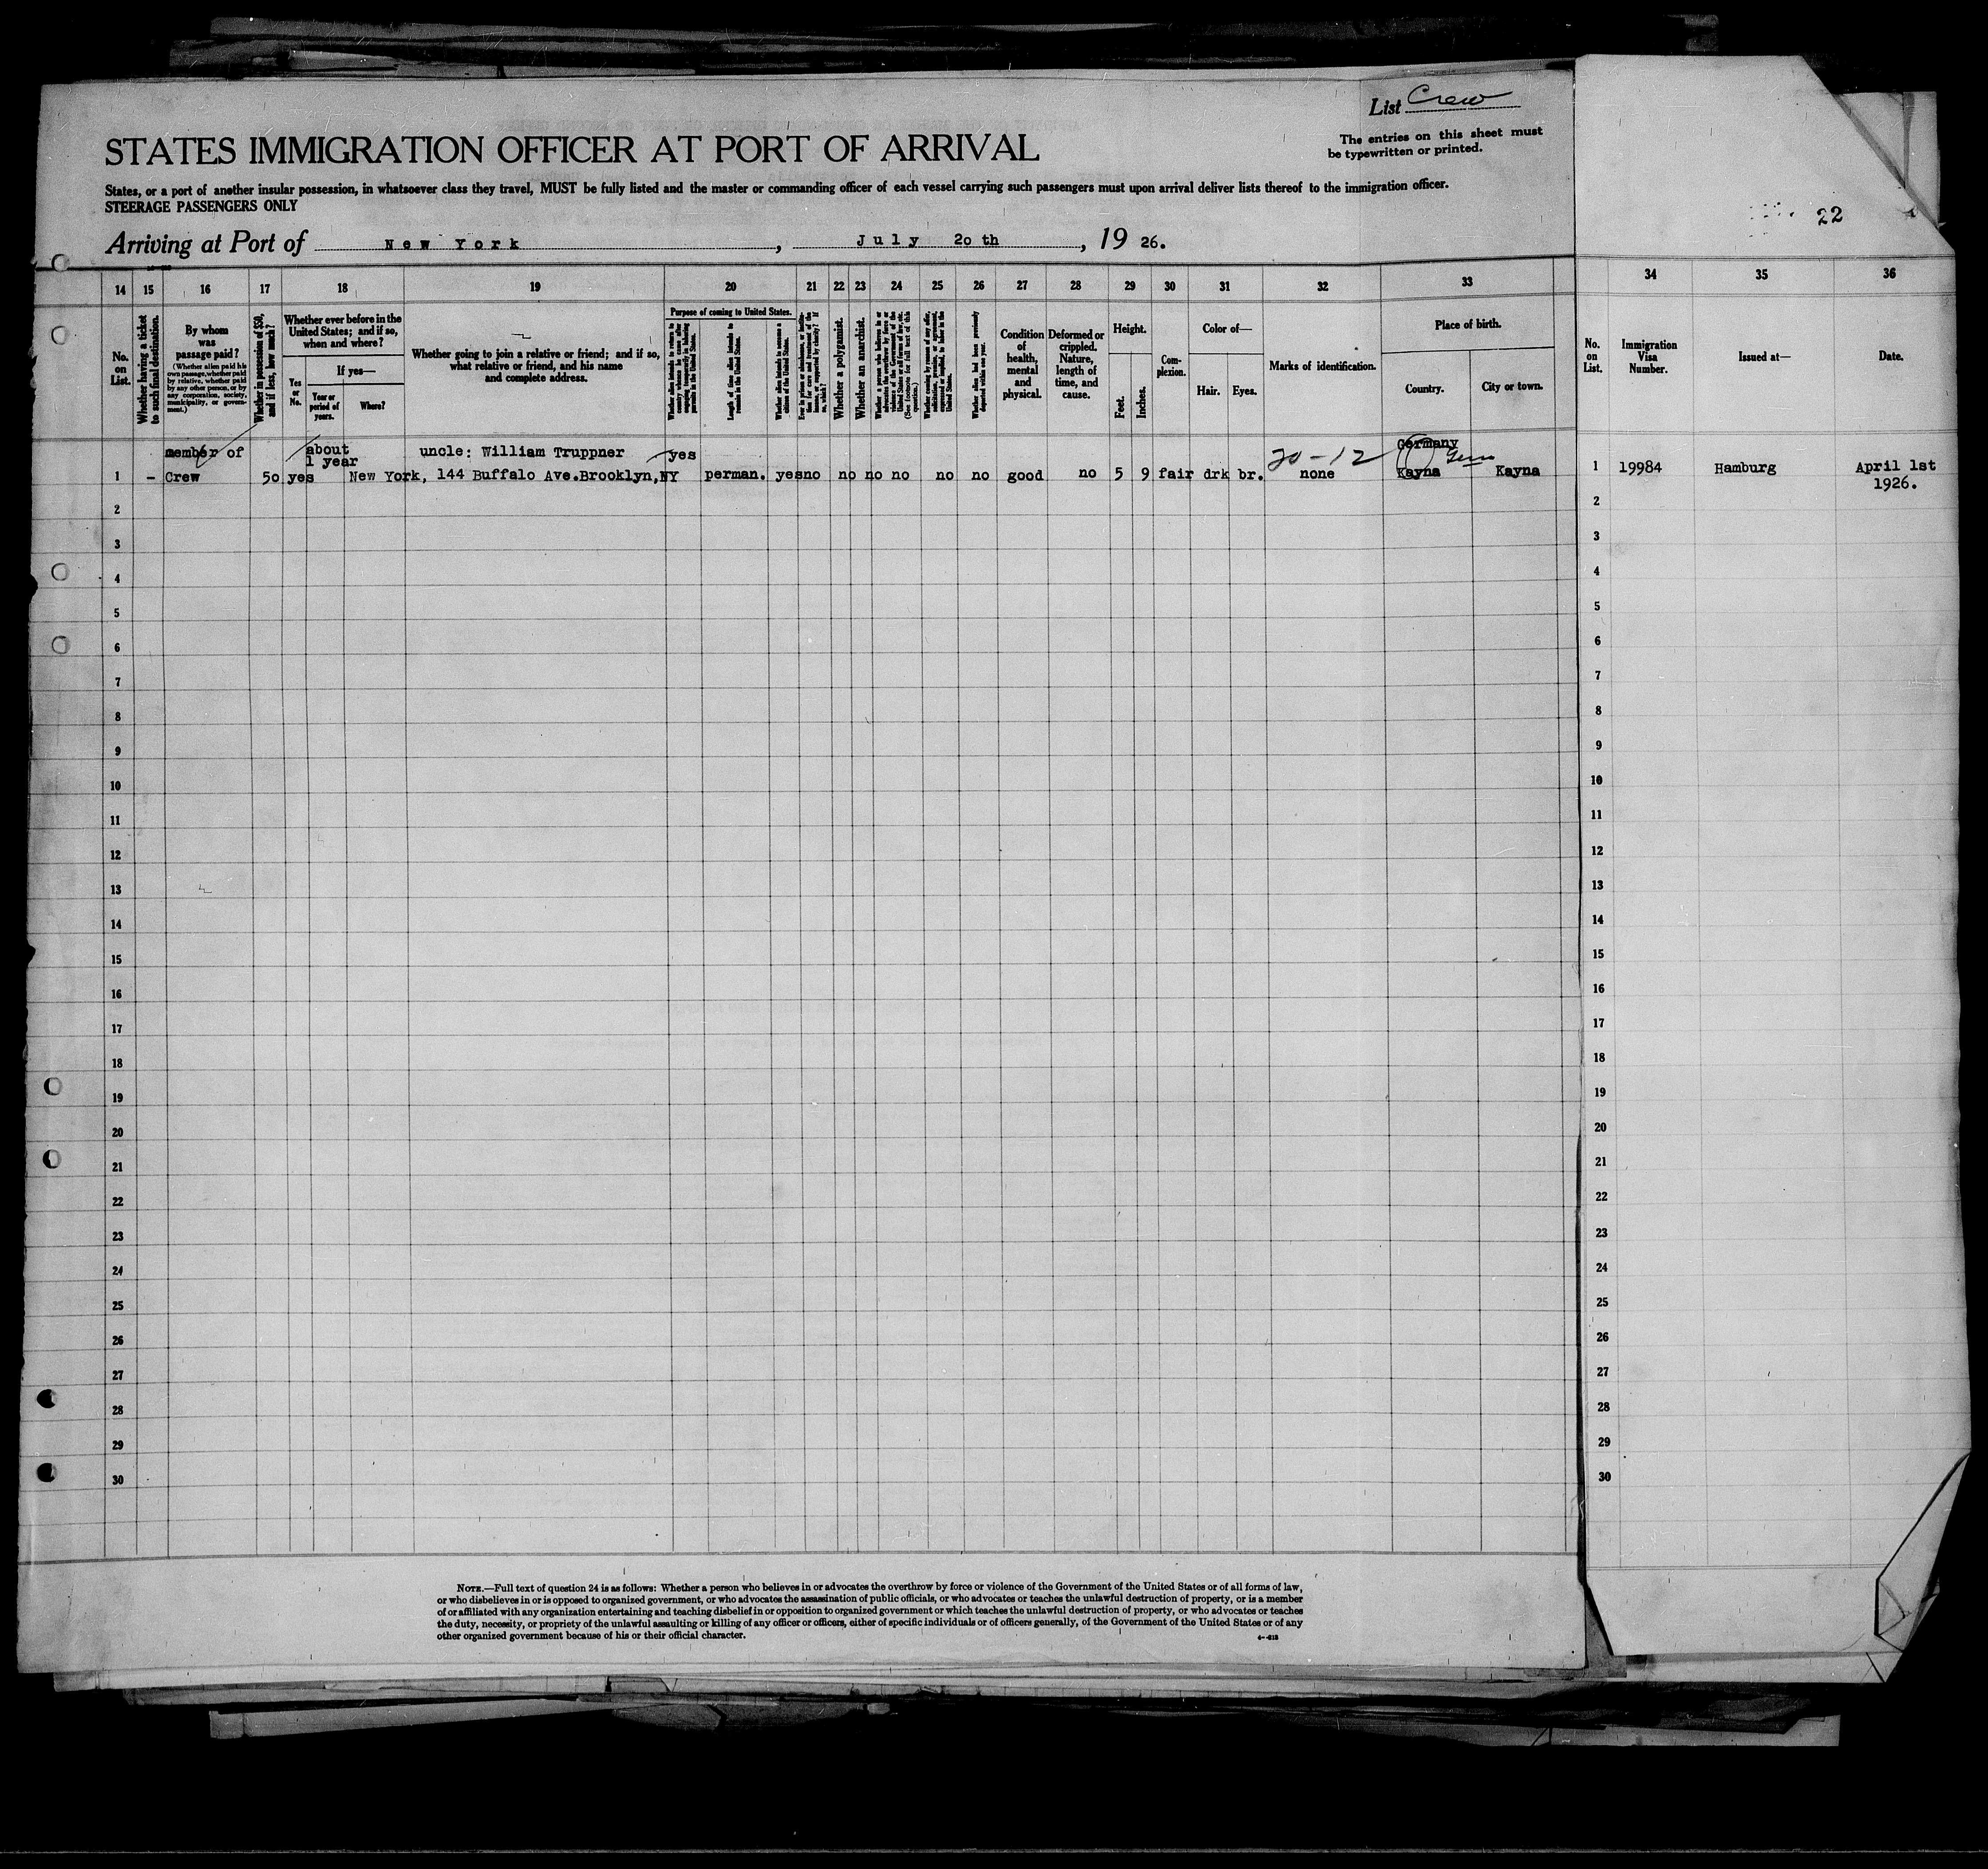 List Crew
The entries on this sheet must
be typewritten or printed.
STATES IMMIGRATION OFFICER AT PORT OF ARRIVAL
States, or a port of another insular possession, in whatsoever class they travel, MUST be fully listed and the master or commanding officer of each vessel carrying such passengers must upon arrival deliver lists thereof to the immigration officer.
STEERAGE PASSENGERS ONLY
22
Arriving at Port of New York, July 20 th, 19 26.
14 15 16 17 18 19 20 21 22 23 24 25 26 27 28 29 30 31 32 33 34 35 36
No. on List.
Whether having a ticket to such final destination.
By whom was passage paid?
(Whether alien paid his own passage, whether paid by relative, whether paid by any other person, or by any corporation, society, municipality, or government.)
Whether in possession of $50, and if less, how much?
Whether ever before in the United States; and if so, when and where?
Yes or No.
If yes—
Year or period of years.
Where?
Whether going to join a relative or friend; and if so, what relative or friend, and his name and complete address.
Purpose of coming to United States.
Length of time alien intends to remain in the United States.
Whether alien intends to become a citizen of the United States.
Whether a polygamist.
Whether an anarchist.
Condition of health, mental and physical.
Deformed or crippled. Nature, length of time, and cause.
Height.
Feet.
Inches.
Complexion.
Color of—
Hair.
Eyes.
Marks of identification.
Place of birth.
Country.
City or town.
No. on List.
Immigration Visa Number.
Issued at—
Date.
member of about uncle: William Truppner yes 20-12 Germany Ger
1 year
1 - Crew 50 yes New York, 144 Buffalo Ave.Brooklyn,NY perman. yes no no no no no no good no 5 9 fair drk br. none Kayna Kayna 1 19984 Hamburg April 1st
1926.
2 2
3 3
4 4
5 5
6 6
7 7
8 8
9 9
10 10
11 11
12 12
13 13
14 14
15 15
16 16
17 17
18 18
19 19
20 20
21 21
22 22
23 23
24 24
25 25
26 26
27 27
28 28
29 29
30 30
NOTE.—Full text of question 24 is as follows: Whether a person who believes in or advocates the overthrow by force or violence of the Government of the United States or of all forms of law,
or who disbelieves in or is opposed to organized government, or who advocates the assassination of public officials, or who advocates or teaches the unlawful destruction of property, or is a member
of or affiliated with any organization entertaining and teaching disbelief in or opposition to organized government or which teaches the unlawful destruction of property, or who advocates or teaches
the duty, necessity, or propriety of the unlawful assaulting or killing of any officer or officers, either of specific individuals or of officers generally, of the Government of the United States or of any
other organized government because of his or their official character.